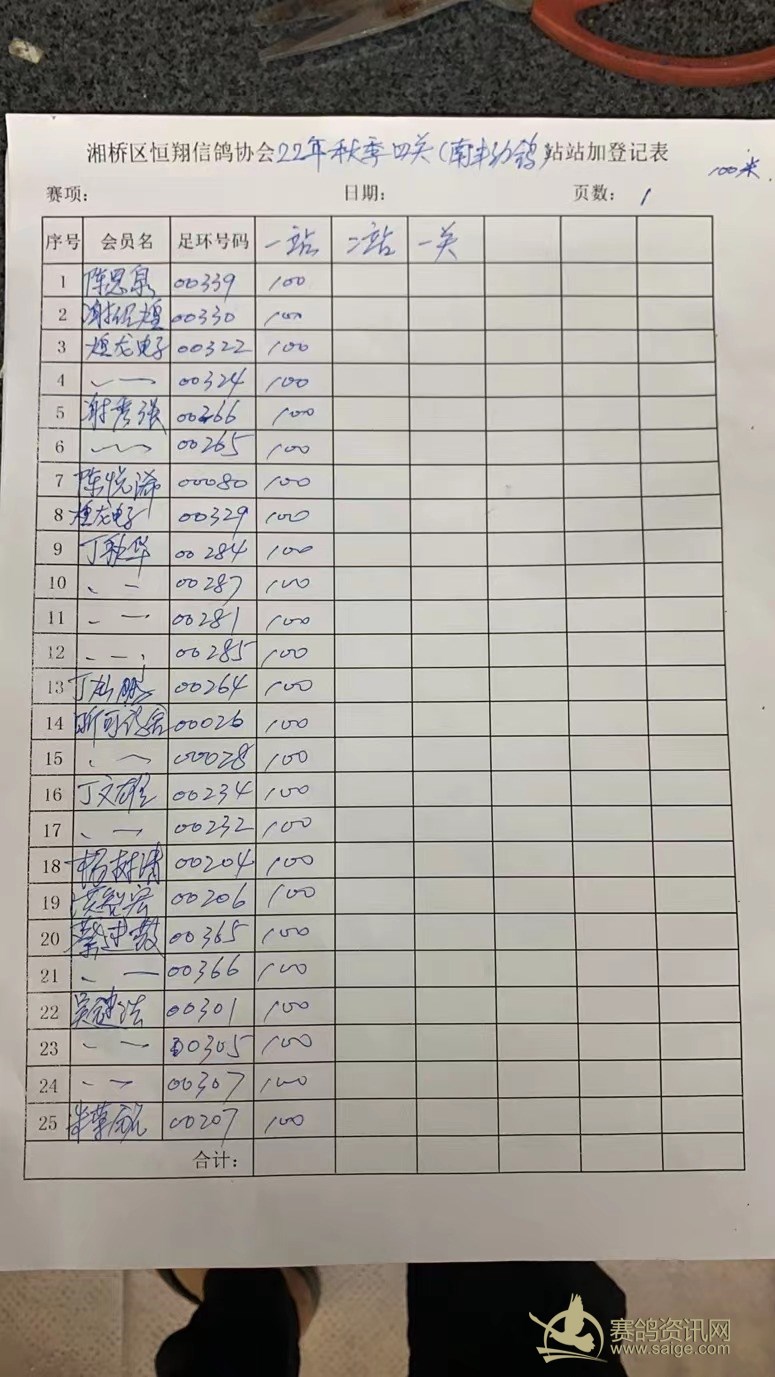 湘桥区恒翔信鸽协会22年秋季四关(南丰幼鸽)站站加登记表
100米
赛项: 日期: 页数: 1
序号 会员名 足环号码 一站 二站 一关
1 陈思泉 00339 100
2 00330 100
3 煌龙电子 00322 100
4 〃 — 00324 100
5 谢秀强 00266 100
6 00265 100
7 陈悦浠 00080 100
8 煌龙电子 00329 100
9 丁秋华 00284 100
10 00287 100
11 00281 100
12 00285 100
13 00264 100
14 00026 100
15 00028 100
16 丁文雄 00234 100
17 00232 100
18 杨树清 00204 100
19 00206 100
20 00365 100
21 00366 100
22 00301 100
23 00305 100
24 00307 100
25 00207 100
合计:
赛鸽资讯网
www.saige.com